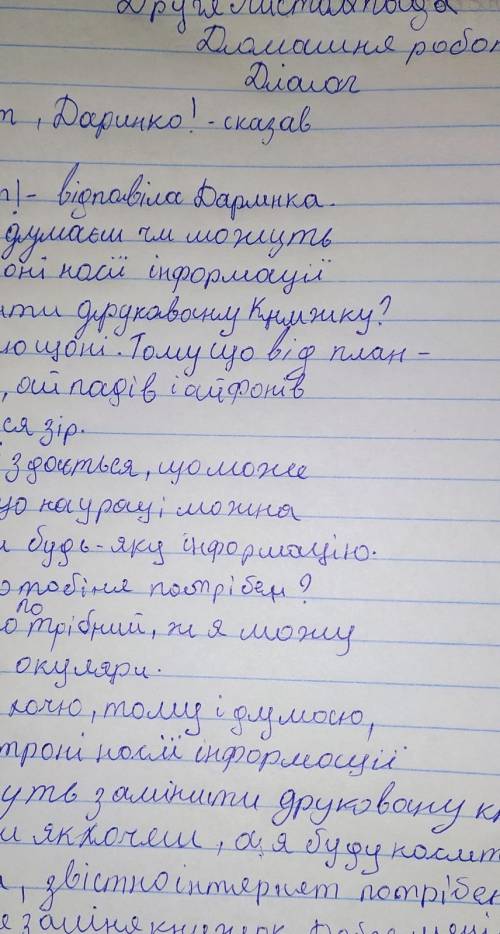 Друге листопада
Домашня робо
Діалог
т, Даринко! - сказав
- відповіла Даринка.
думаєш чи можуть
оні носії інформації
ити друковану книжку?
ю що ні. Тому що від план-
, ай падів і айфонів
ся зір.
здається, що може
що на ураці можна
и будь-яку інформацію.
о тобі не потрібен?
потрібний, ж я можу
окуляри.
хочю, тому і думаю,
троні носії інформації
уть замінити друковану к
и як хочеш, а я буду космт
, звістно інтернет потрібен